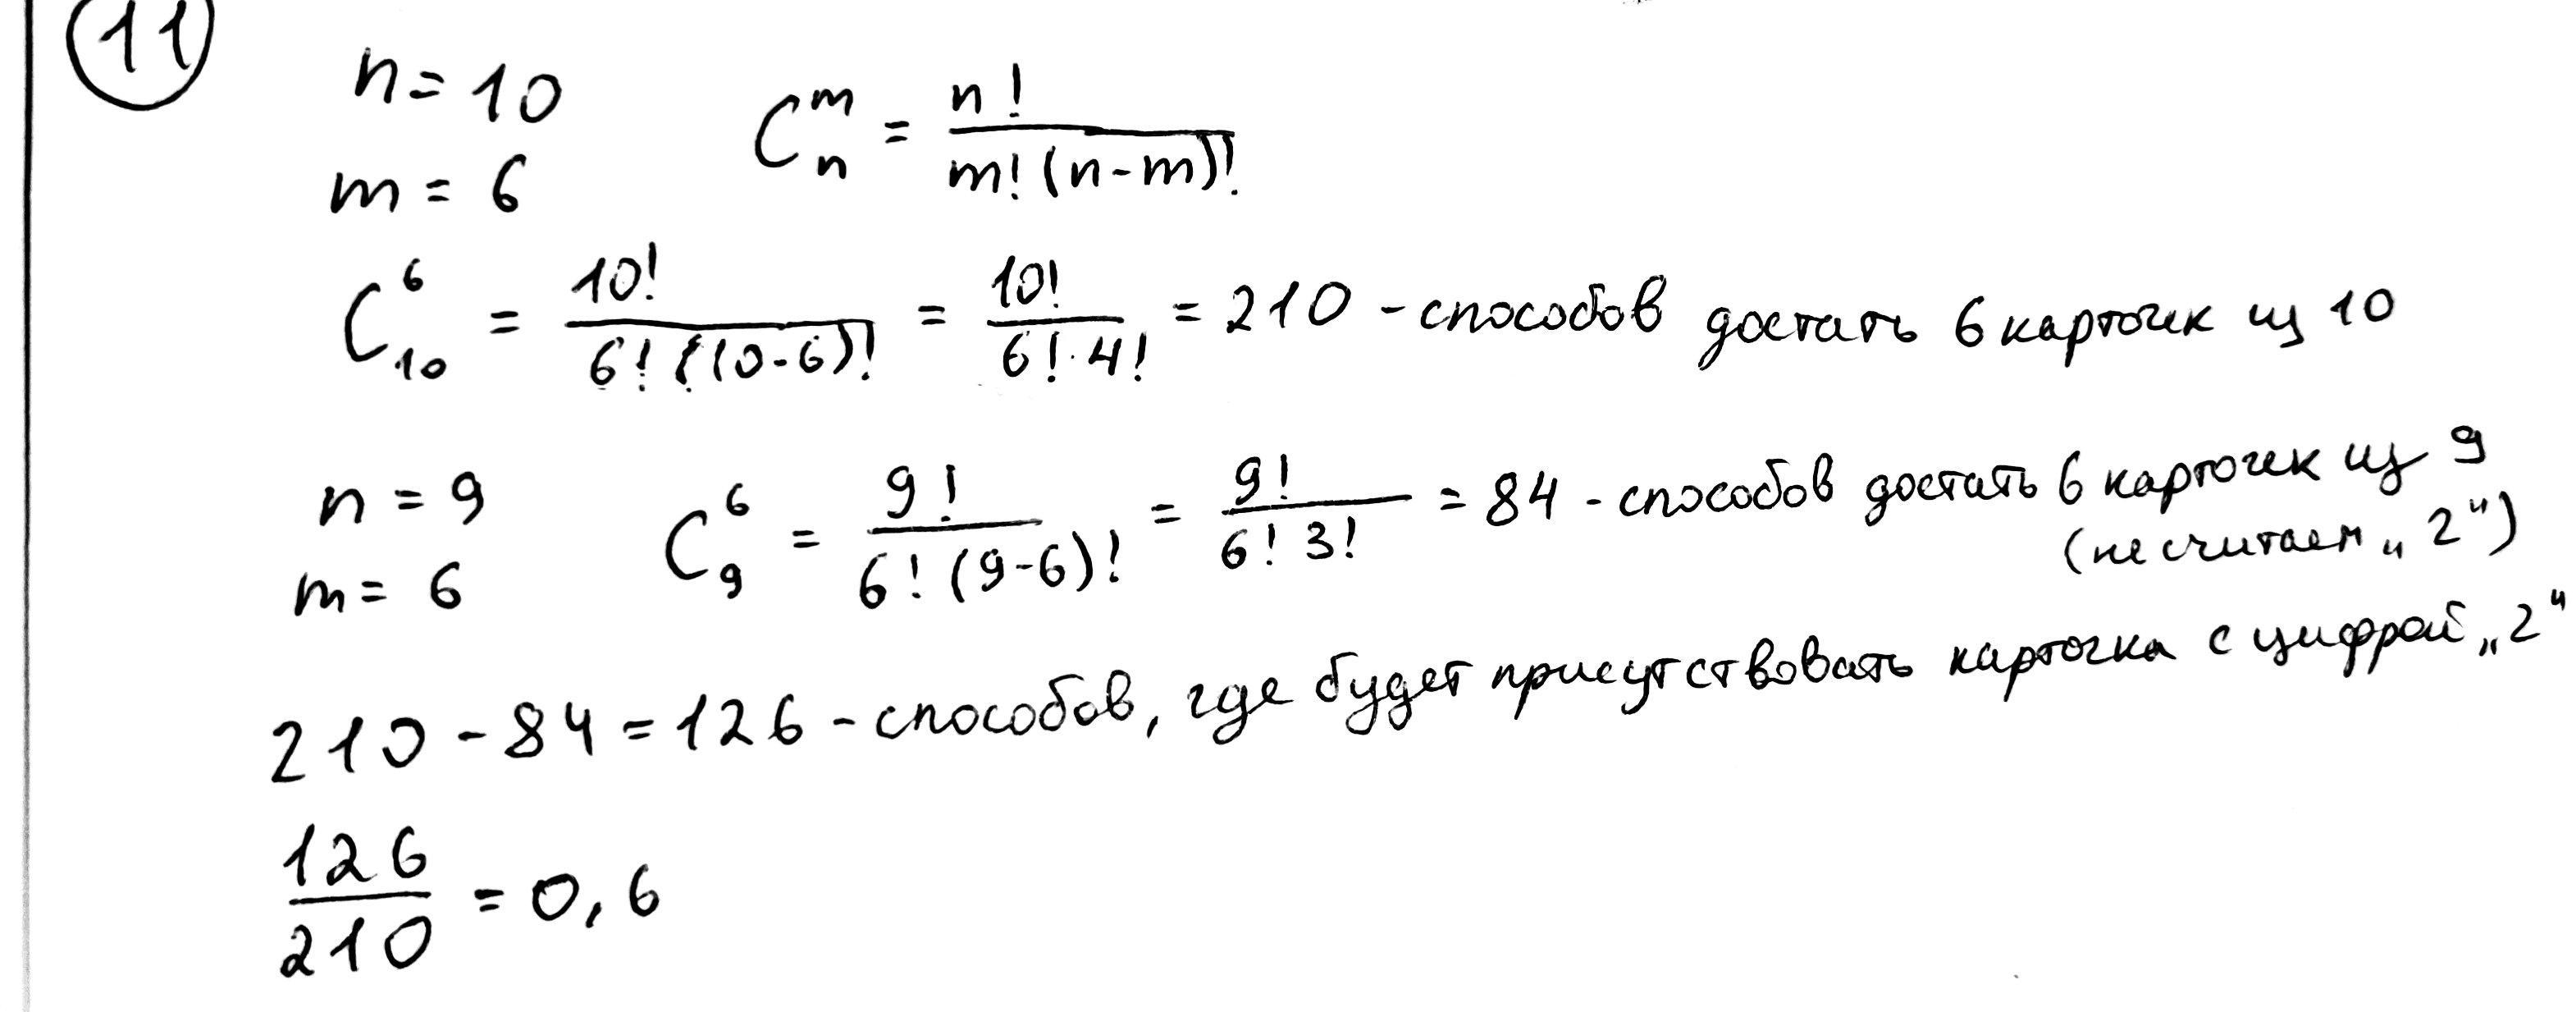 11
n = 10
m = 6
C_n^m = n! / m! (n-m)!
C_10^6 = 10! / 6! (10-6)! = 10! / 6! · 4! = 210 - способов достать 6 карточек из 10
n = 9
m = 6
C_9^6 = 9! / 6! (9-6)! = 9! / 6! 3! = 84 - способов достать 6 карточек из 9
(не считаем „2“)
210 - 84 = 126 - способов, где будет присутствовать карточка с цифрой „2“
126 / 210 = 0,6